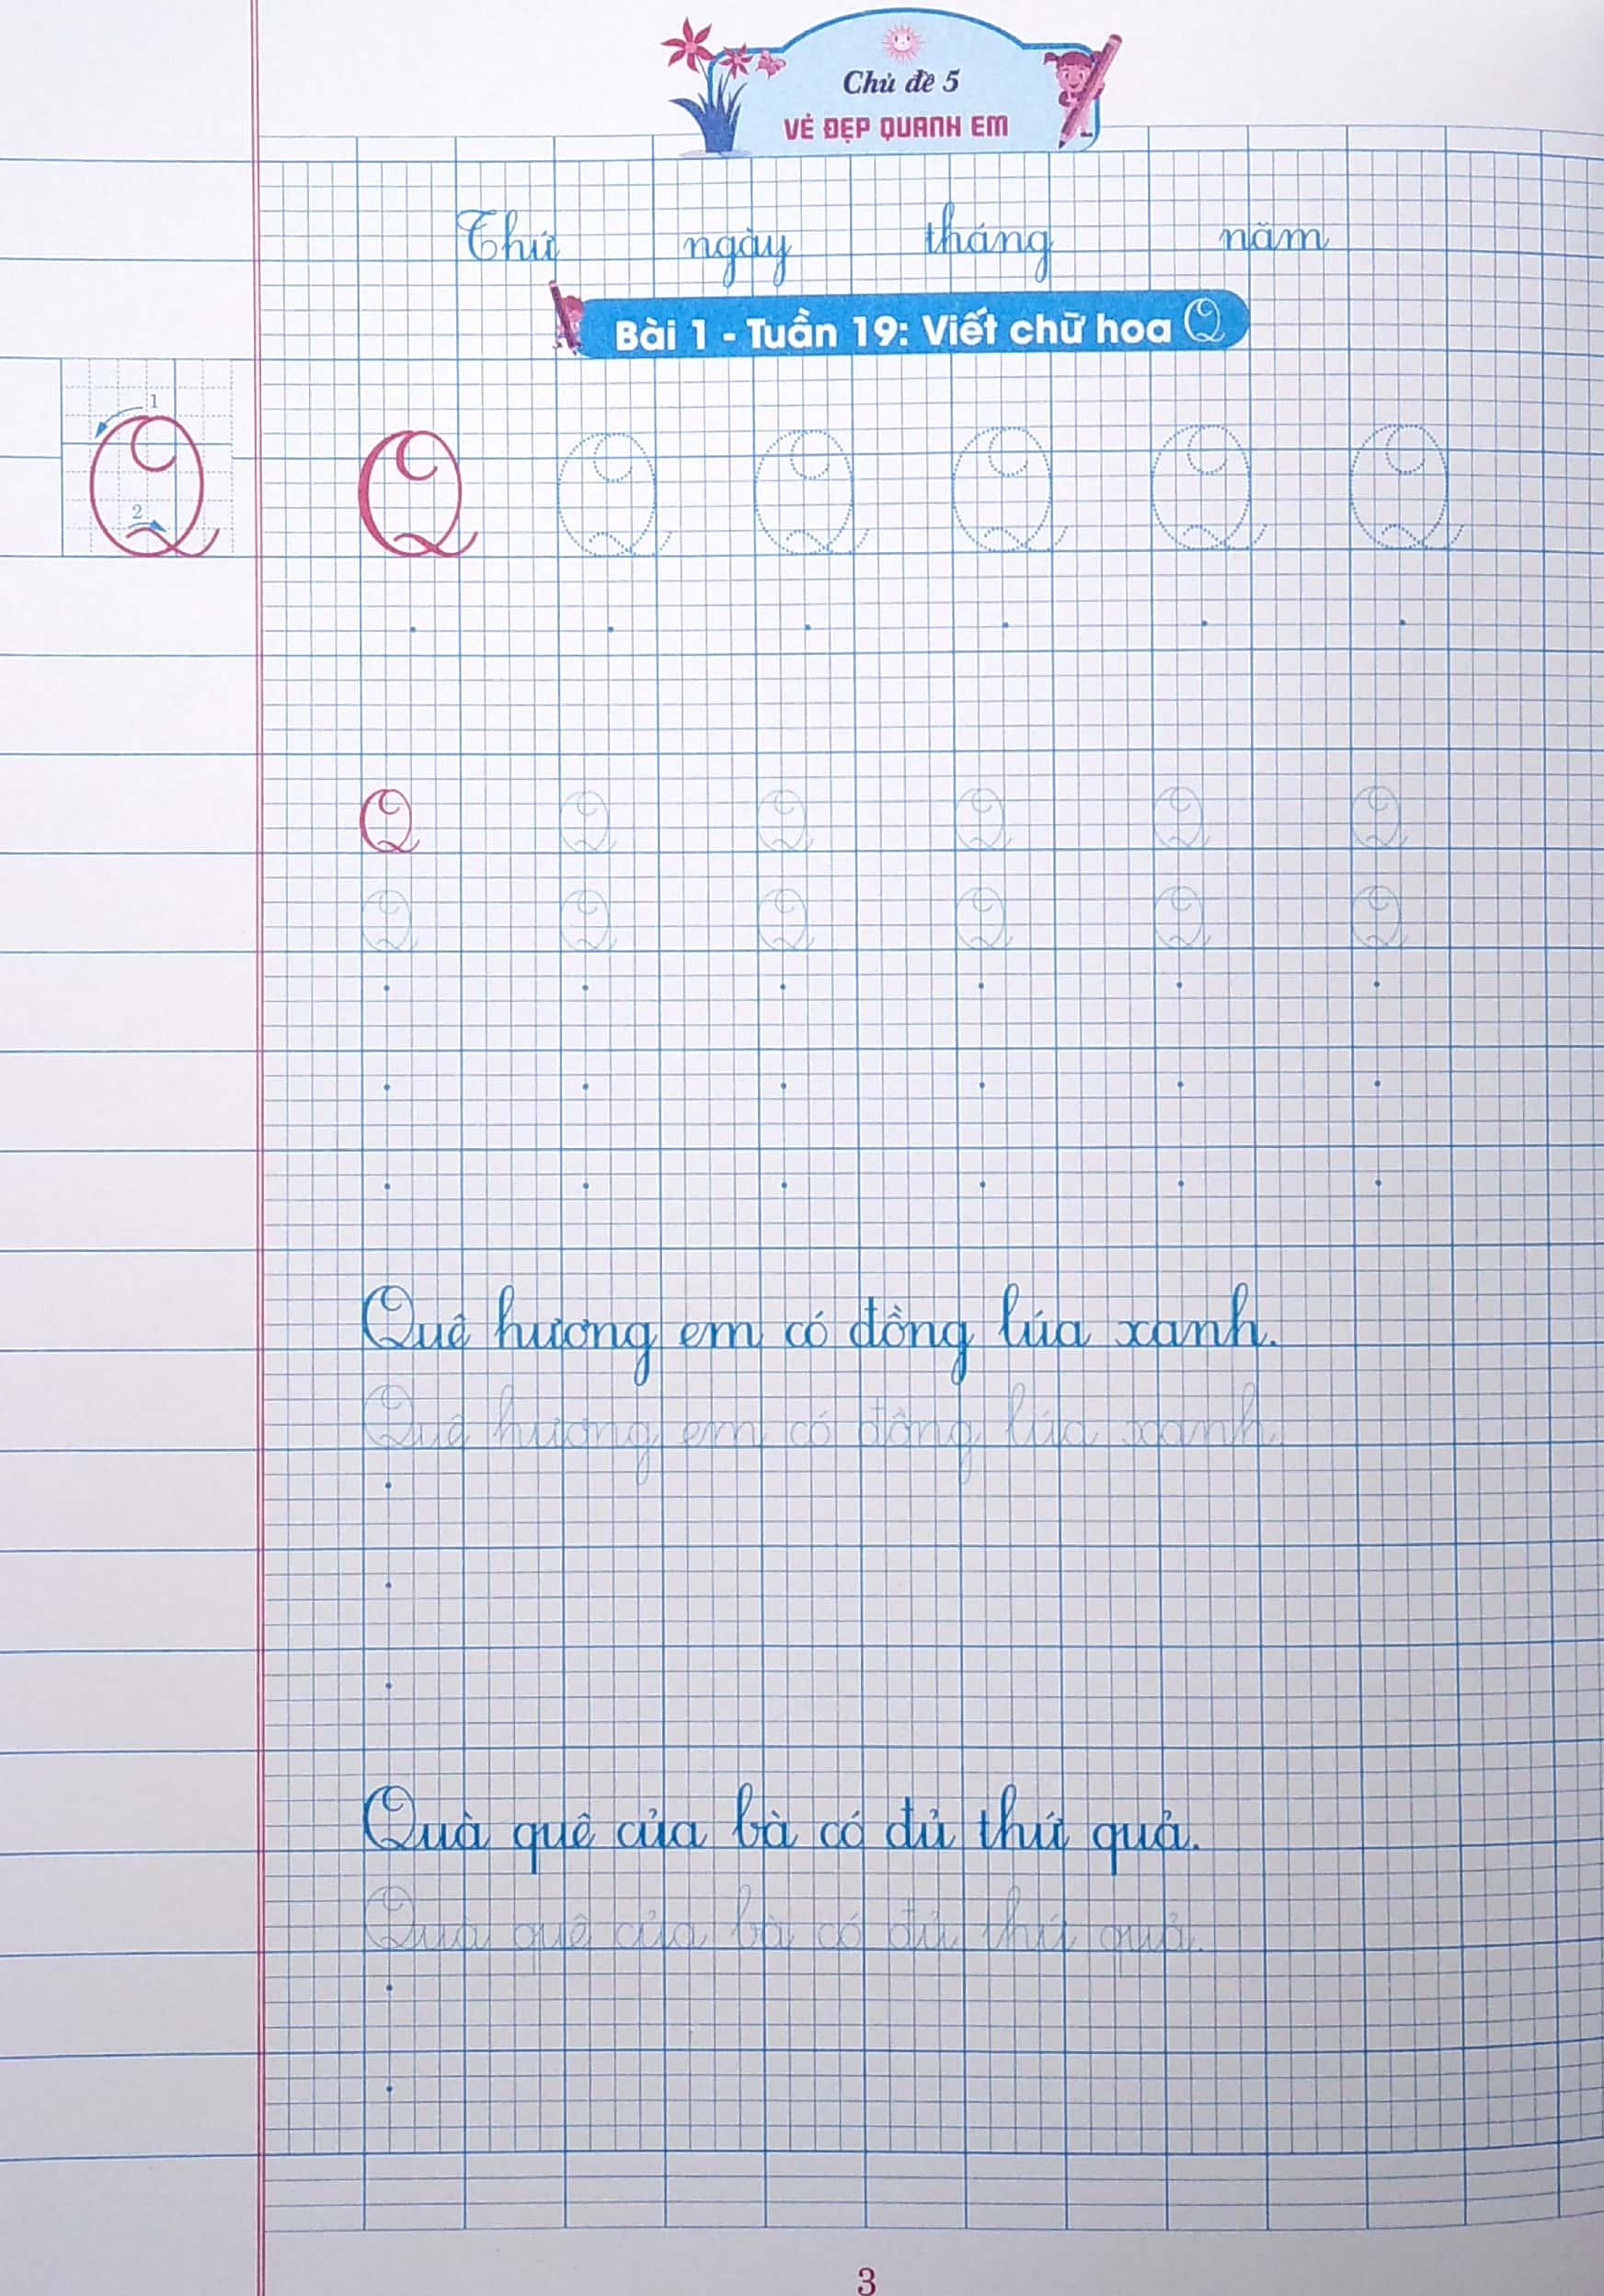 Chủ đề 5
VẺ ĐẸP QUANH EM
Thứ ngày tháng năm
Bài 1 - Tuần 19: Viết chữ hoa Q
1
2
Q
Q Q Q Q Q Q
Q Q Q Q Q Q
Q Q Q Q Q Q
Quê hương em có đồng lúa xanh.
Quê hương em có đồng lúa xanh.
Quà quê của bà có đủ thứ quả.
Quà quê của bà có đủ thứ quả.
3